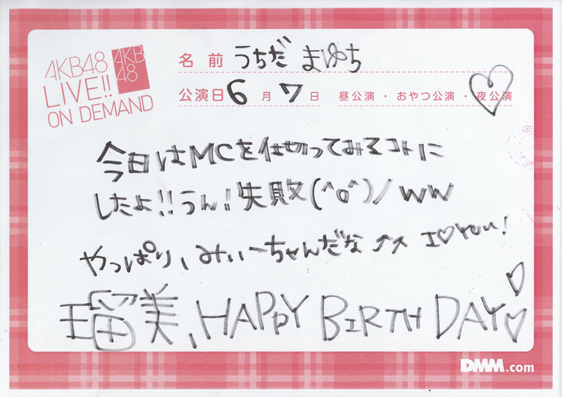 AKB48
LIVE!!
ON DEMAND
AKB
48
名前 うちだ まゆち
公演日 6 月 7 日 昼公演・おやつ公演・夜公演
今日はMCを仕切ってみるコトに
したよ!!うん!失敗(^o^)/ww
やっぱり、みぃーちゃんだな I♡You!
瑠美、HAPPY BIRTH DAY♡♡
DMM.com